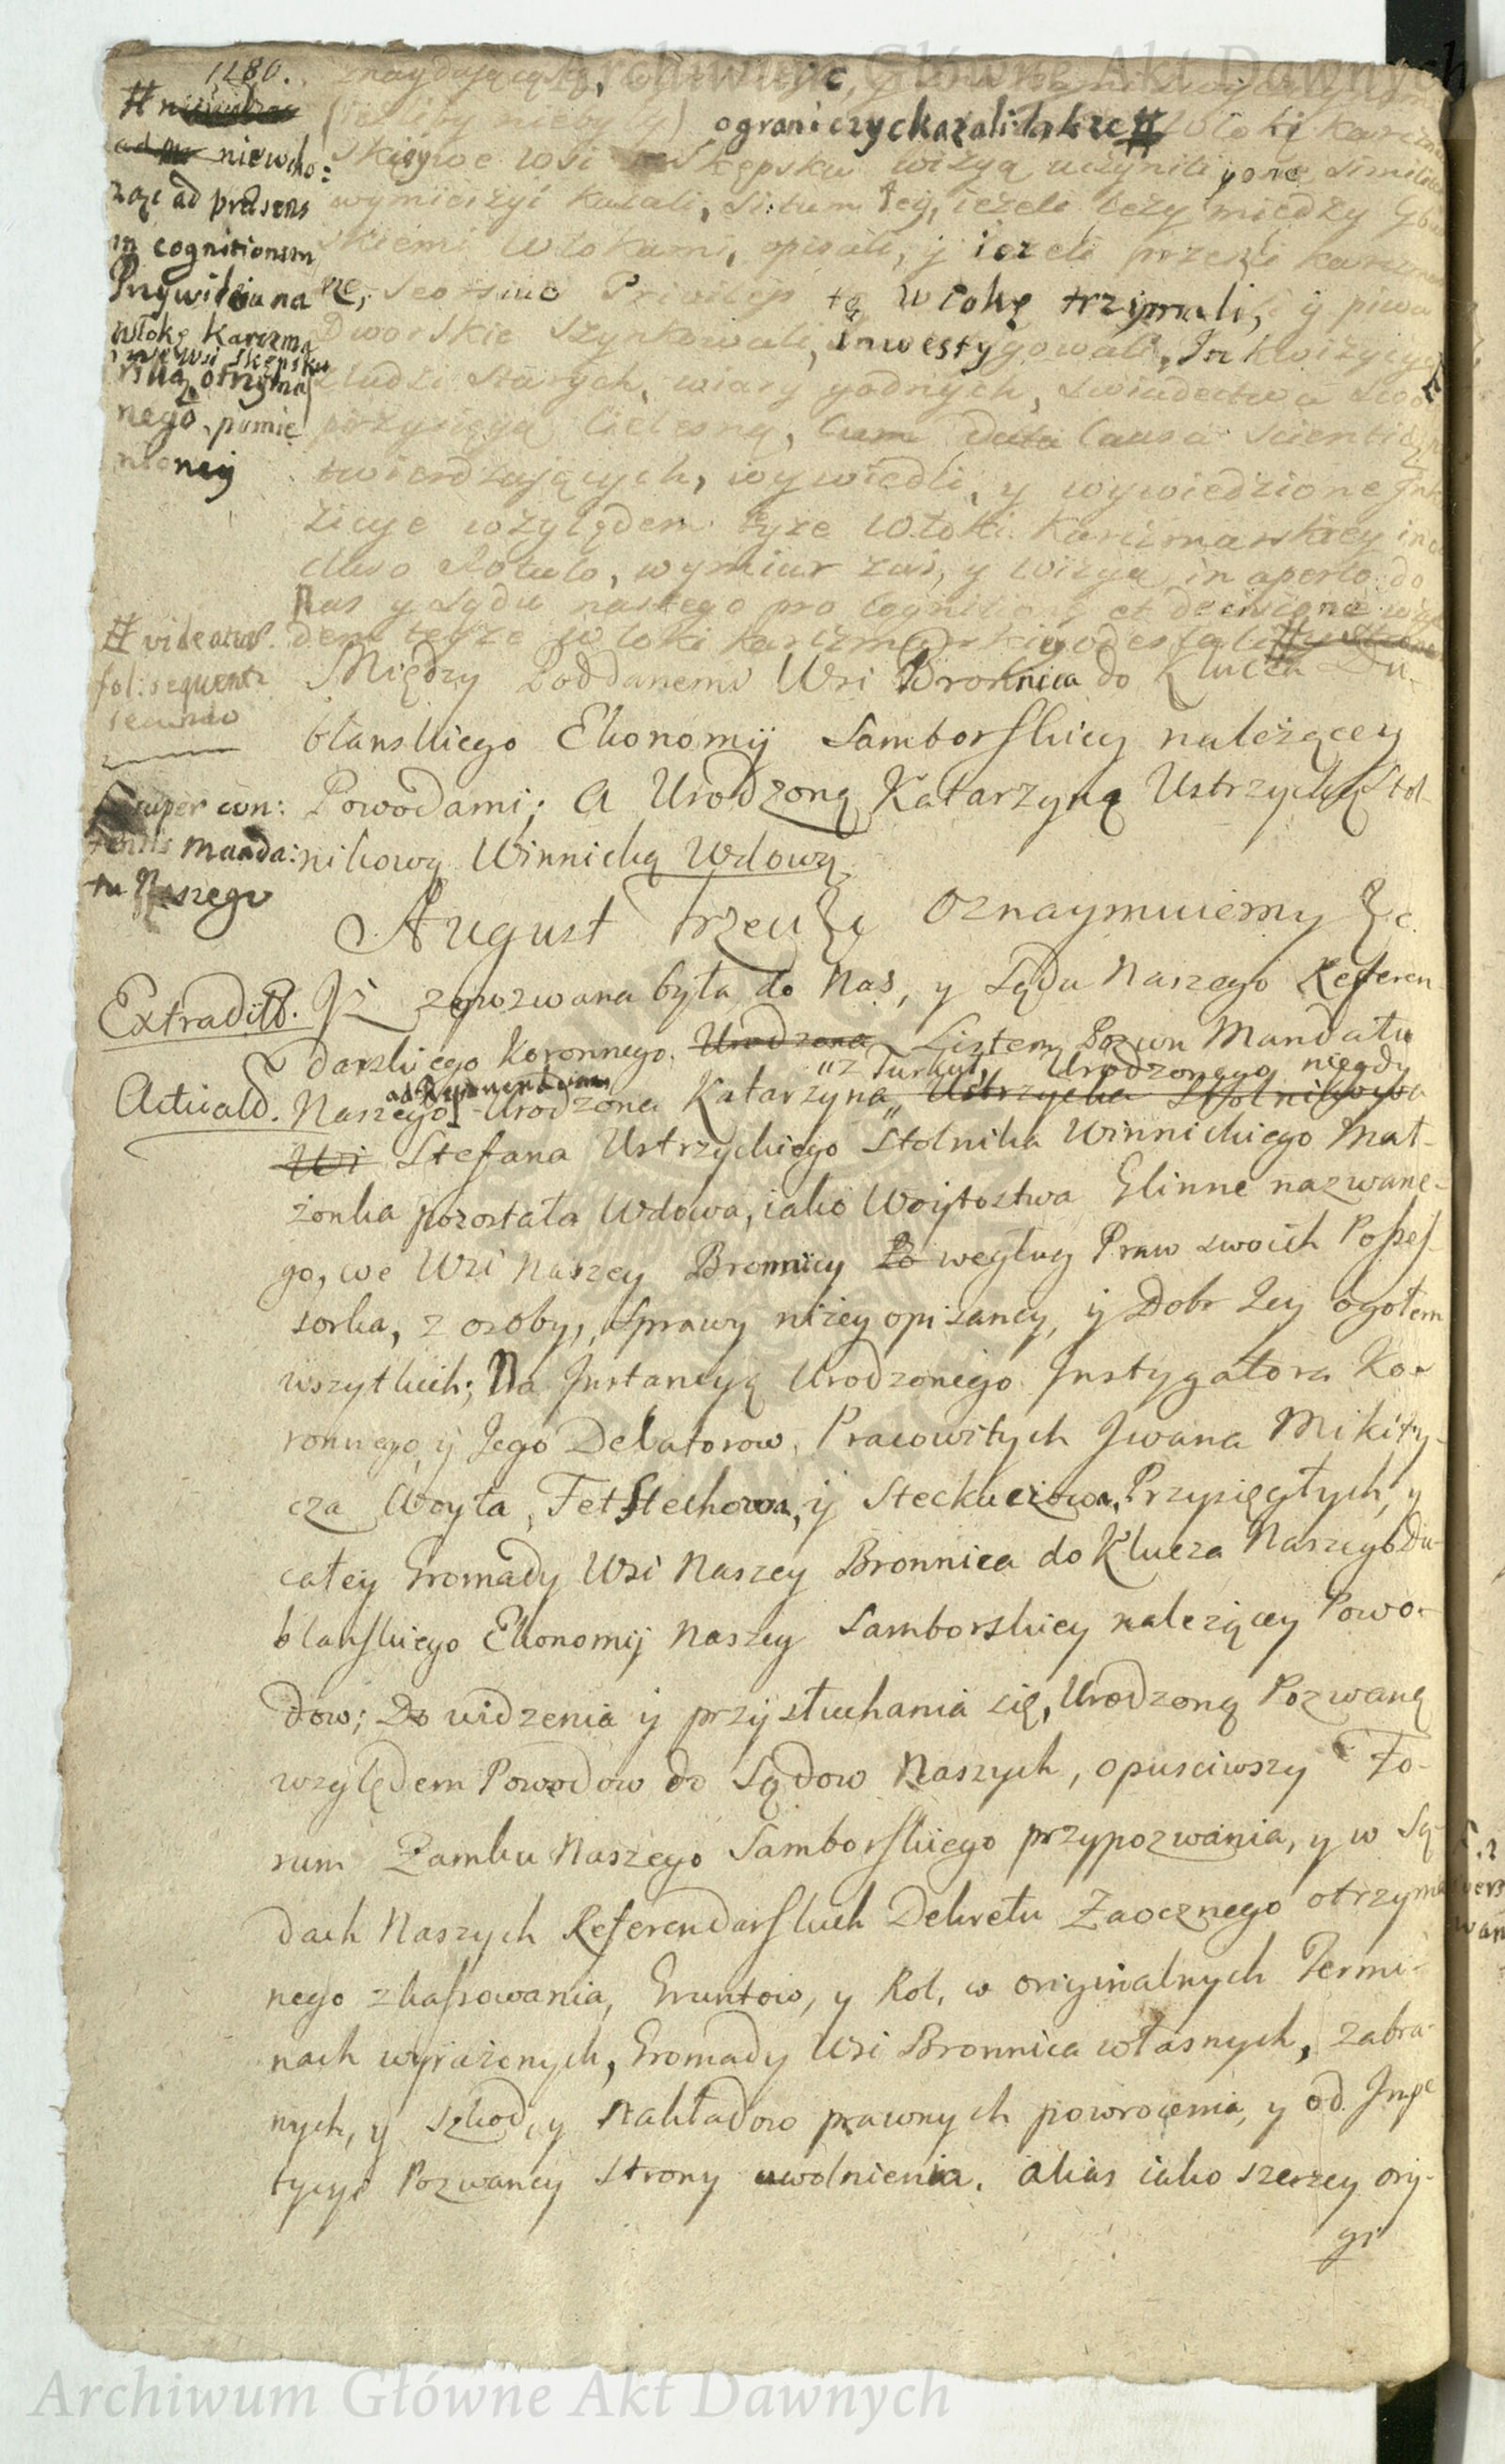 1280.
ograniczyc kazali także #
# niewcho:
dząc ad præsens
in cognitionem
Przywileiu na
włokę Karczma
we wsi Skępsku
rską otrzyma
nego, pomie
nioney
wymierzyć kazali, situm tey, ieżeli leży między
skiemi Włokami, opisali, y ieżeli przeszli karczma
rze, seorsivo Przywiley tę włokę trzymali, y piwa
Dworskie szynkowali, inwestygowali, Inkwizycye
z ludzi starych, wiary godnych, świadectwa swoie
przysięgą cielesną, cum data causa scientiæ
twierdzaiących, wywiedli, y wywiedzione Ink
zicye względem teyże Włoki Karczmarskiey in
cluso Rotulo, wymiar zaś, y wizyą in aperto do
Nas y Sądu naszego pro cognitione et decisione wzglę
dem teyże Włoki karczmarskiey odesłali
# videatur
fol: sequenti
secundo
Między Poddanemi Wsi Bronnica do Klucza Du-
blanskiego Ekonomij Samborskiey należącey
Powodami; A Urodzoną Katarzyną Ustrzycką Stol-
nikową Winnicką Wdową
super con:
tentis manda:
tu Naszego
August Trzeci Oznaymuiemy &c.
Extradit. Iż zapozwana była do Nas, y Sądu Naszego Referen-
darskiego Koronnego. Urodzona Listem Pozwu Mandatu
"z Turkuł, Urodzonego niegdy
Actuald. Naszego ad Urodzona Katarzyna" Ustrzycka Stolnikowa
Wi Stefana Ustrzyckiego Stolnika Winnickiego Mał-
żonka pozostała Wdowa, iako Woytostwa Glinne nazwane-
go, we Wsi Naszey Bronnicy Po według Praw swoich Posses-
sorka, z osoby, sprawy niżey opisaney, y Dobr Jey ogołem
wszytkich; Na Instancyą Urodzonego Instygatora Ko-
ronnego, y Jego Delatorow, Pracowitych Jwana Mikity-
cza Woyta, Fet Stechowa, y Steckaciowa, Przysięgłych, y
całey Gromady Wsi Naszey Bronnica do Klucza Naszego Du-
blanskiego Ekonomij Naszey Samborskiey należącey Powo-
dow; Do widzenia y przysłuchania się, Urodzoną Pozwaną
względem Powodow do Sądow Naszych, opusciwszy Fo-
rum Zamku Naszego Samborskiego przypozwania, y w Są-
dach Naszych Referendarskich Dekretu Zaocznego otrzyma
nego zkassowania, Gruntow, y Rol, w originalnych Termi-
nach wyrażonych, Gromady Wsi Bronnica własnych, zabra-
nych, y szkod, y nakładow prawnych powrocenia, y od Impe
tycyi Pozwaney strony uwolnienia. alias iako szerzey ory-
gi
Archiwum Główne Akt Dawnych